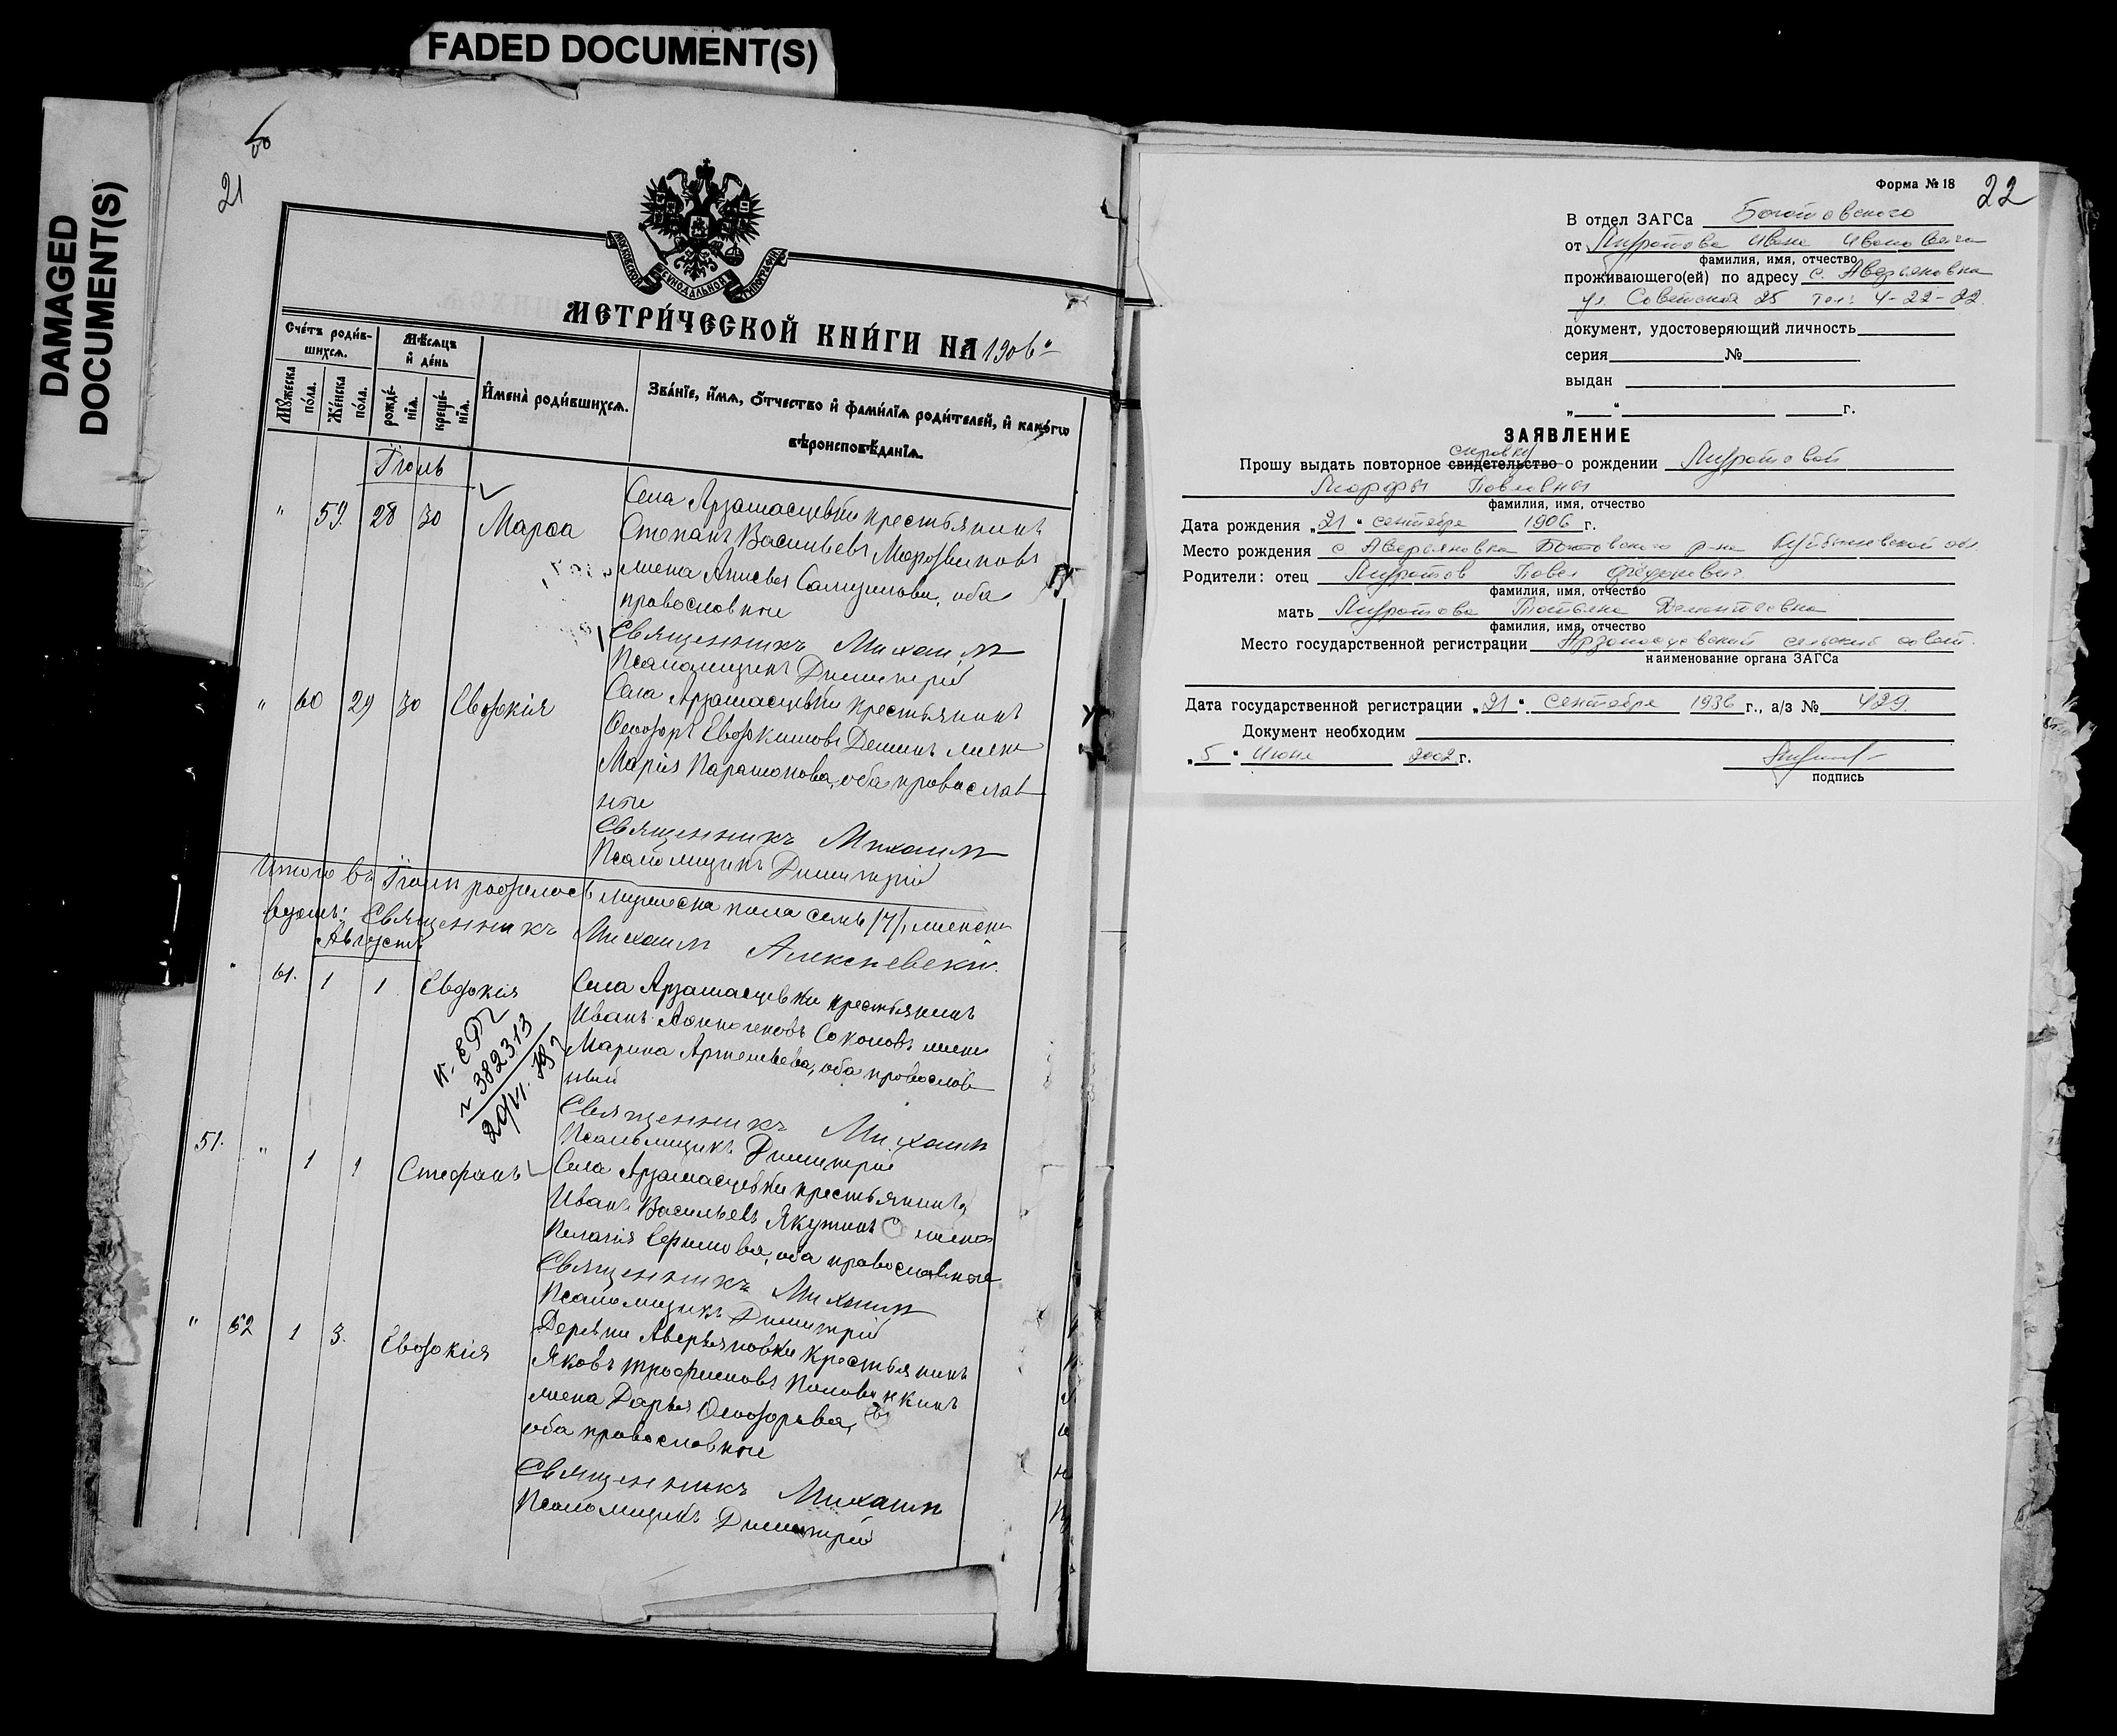 FADED DOCUMENT(S)
DAMAGED
DOCUMENT(S)
21
МОСКОВСКОЙ СѴНОДАЛЬНОЙ ТИПОГРАФІИ
МЕТРИ́ЧЕСКОЙ КНИ́ГИ НА 1906 г
Сче́тъ роди́в-
шихсѧ.
Мѣ́сѧцъ
и҆ де́нь
Му́жеска
по́ла.
Же́нска
по́ла.
рожде́-
нїѧ.
креще́-
нїѧ.
И҆мена̀ роди́вшихсѧ.
Зва́нїе, и҆́мѧ, ѻ҆́тчество и҆ фами́лїѧ роди́телей, и҆ како́гѡ
вѣроисповѣ́данїѧ.
Іюль
" 59. 28 30 Марѳа
Села Арзамасцевки крестьянинъ
Степанъ Васильевъ
жена Самуилова, оба
православные
Священникъ Михаилъ
Псаломщикъ Димитрій
" 60 29 30 Евдокія
Села Арзамасцевки крестьянинъ
Ѳеодоръ Евдокимовъ Деминъ жена
Марія Парамонова, оба православ
ные
Священникъ Михаилъ
Псаломщикъ Димитрій
Итого въ Іюлѣ родилось мужеска пола семь /7/, женска
Священникъ Михаилъ Алексѣевскій.
Августъ
" 61. 1 1 Евдокія
Села Арзамасцевки крестьянинъ
Иванъ Аѳиногеновъ Соколовъ жена
Марина Артемьева, оба православ
ный
Священникъ Михаилъ
Псаломщикъ Димитрій
№ 382313
51. " 1 1 Стефанъ
Села Арзамасцевки крестьянинъ
Иванъ Васильевъ Якунинъ жена
Пелагія, оба православные
Священникъ Михаилъ
Псаломщикъ Димитрій
" 62 1 3. Евдокія
Деревни Аверьяновки крестьянинъ
Яковъ Трофимовъ Половинкинъ
жена Дарья Ѳеодорова,
оба православные
Священникъ Михаилъ
Псаломщикъ Димитрій
Форма № 18
22
В отдел ЗАГСа Богатовского
от Ивана Ивановича
фамилия, имя, отчество
проживающего(ей) по адресу с. Аверьяновка
ул. Советская 25 тел: 4-22-22
документ, удостоверяющий личность
серия №
выдан
„ “ г.
ЗАЯВЛЕНИЕ
справку
Прошу выдать повторное свидетельство о рождении
Марфы Павловны
фамилия, имя, отчество
Дата рождения „21“ сентября 1906 г.
Место рождения с. Аверьяновка Богатовского р-на Куйбышевской обл.
Родители: отец Павел Фёдорович
фамилия, имя, отчество
мать Татьяна Дементьевна
фамилия, имя, отчество
Место государственной регистрации Арзамасцевский сельский совет.
наименование органа ЗАГСа
Дата государственной регистрации „21“ сентября 1936 г., а/з № 429.
Документ необходим
„5“ июня 2002 г.
подпись